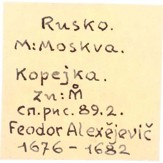 Rusko.
M:Moskva.
Kopejka.
Zn:M̊
СП.РИС.89.2.
Feodor Alexějevič
1676 - 1682